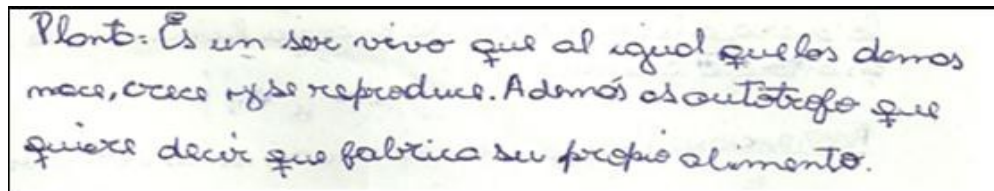 Planta: Es un ser vivo que al igual que los demas
nace, crece y se reproduce. Además es autótrofo que
quiere decir que fabrica su propio alimento.